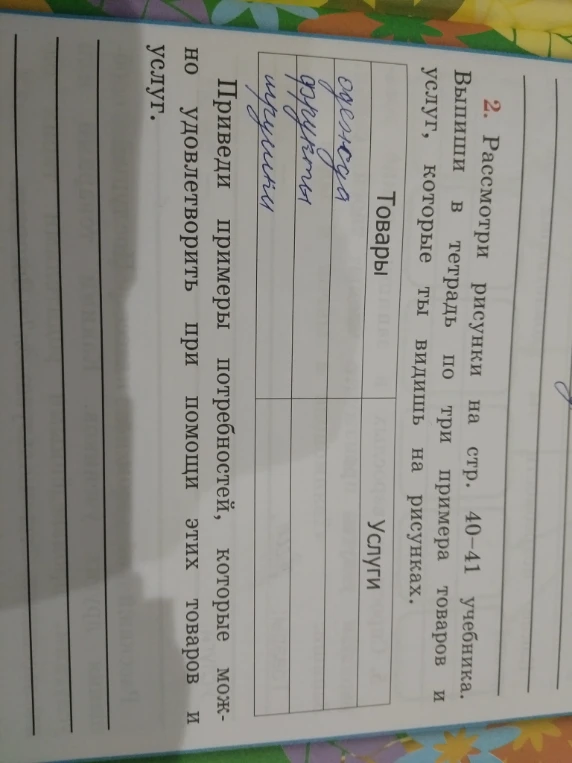 2. Рассмотри рисунки на стр. 40–41 учебника.
Выпиши в тетрадь по три примера товаров и
услуг, которые ты видишь на рисунках.
Товары Услуги
одежда
фрукты
игрушки
Приведи примеры потребностей, которые мож-
но удовлетворить при помощи этих товаров и
услуг.